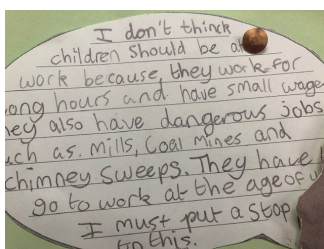 I don't thinck
children should be a
work because, they work for
ong hours and have small wage
hey also have dangerous jobs
uch as. mills, Coal mines and
chimney sweeps. They have
go to work at the age of
I must put a stop
to this.